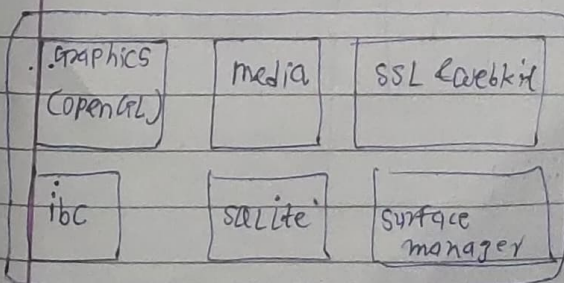 Graphics
(openGL)
media
SSL & webkit
ibc
SQLite
Surface
manager